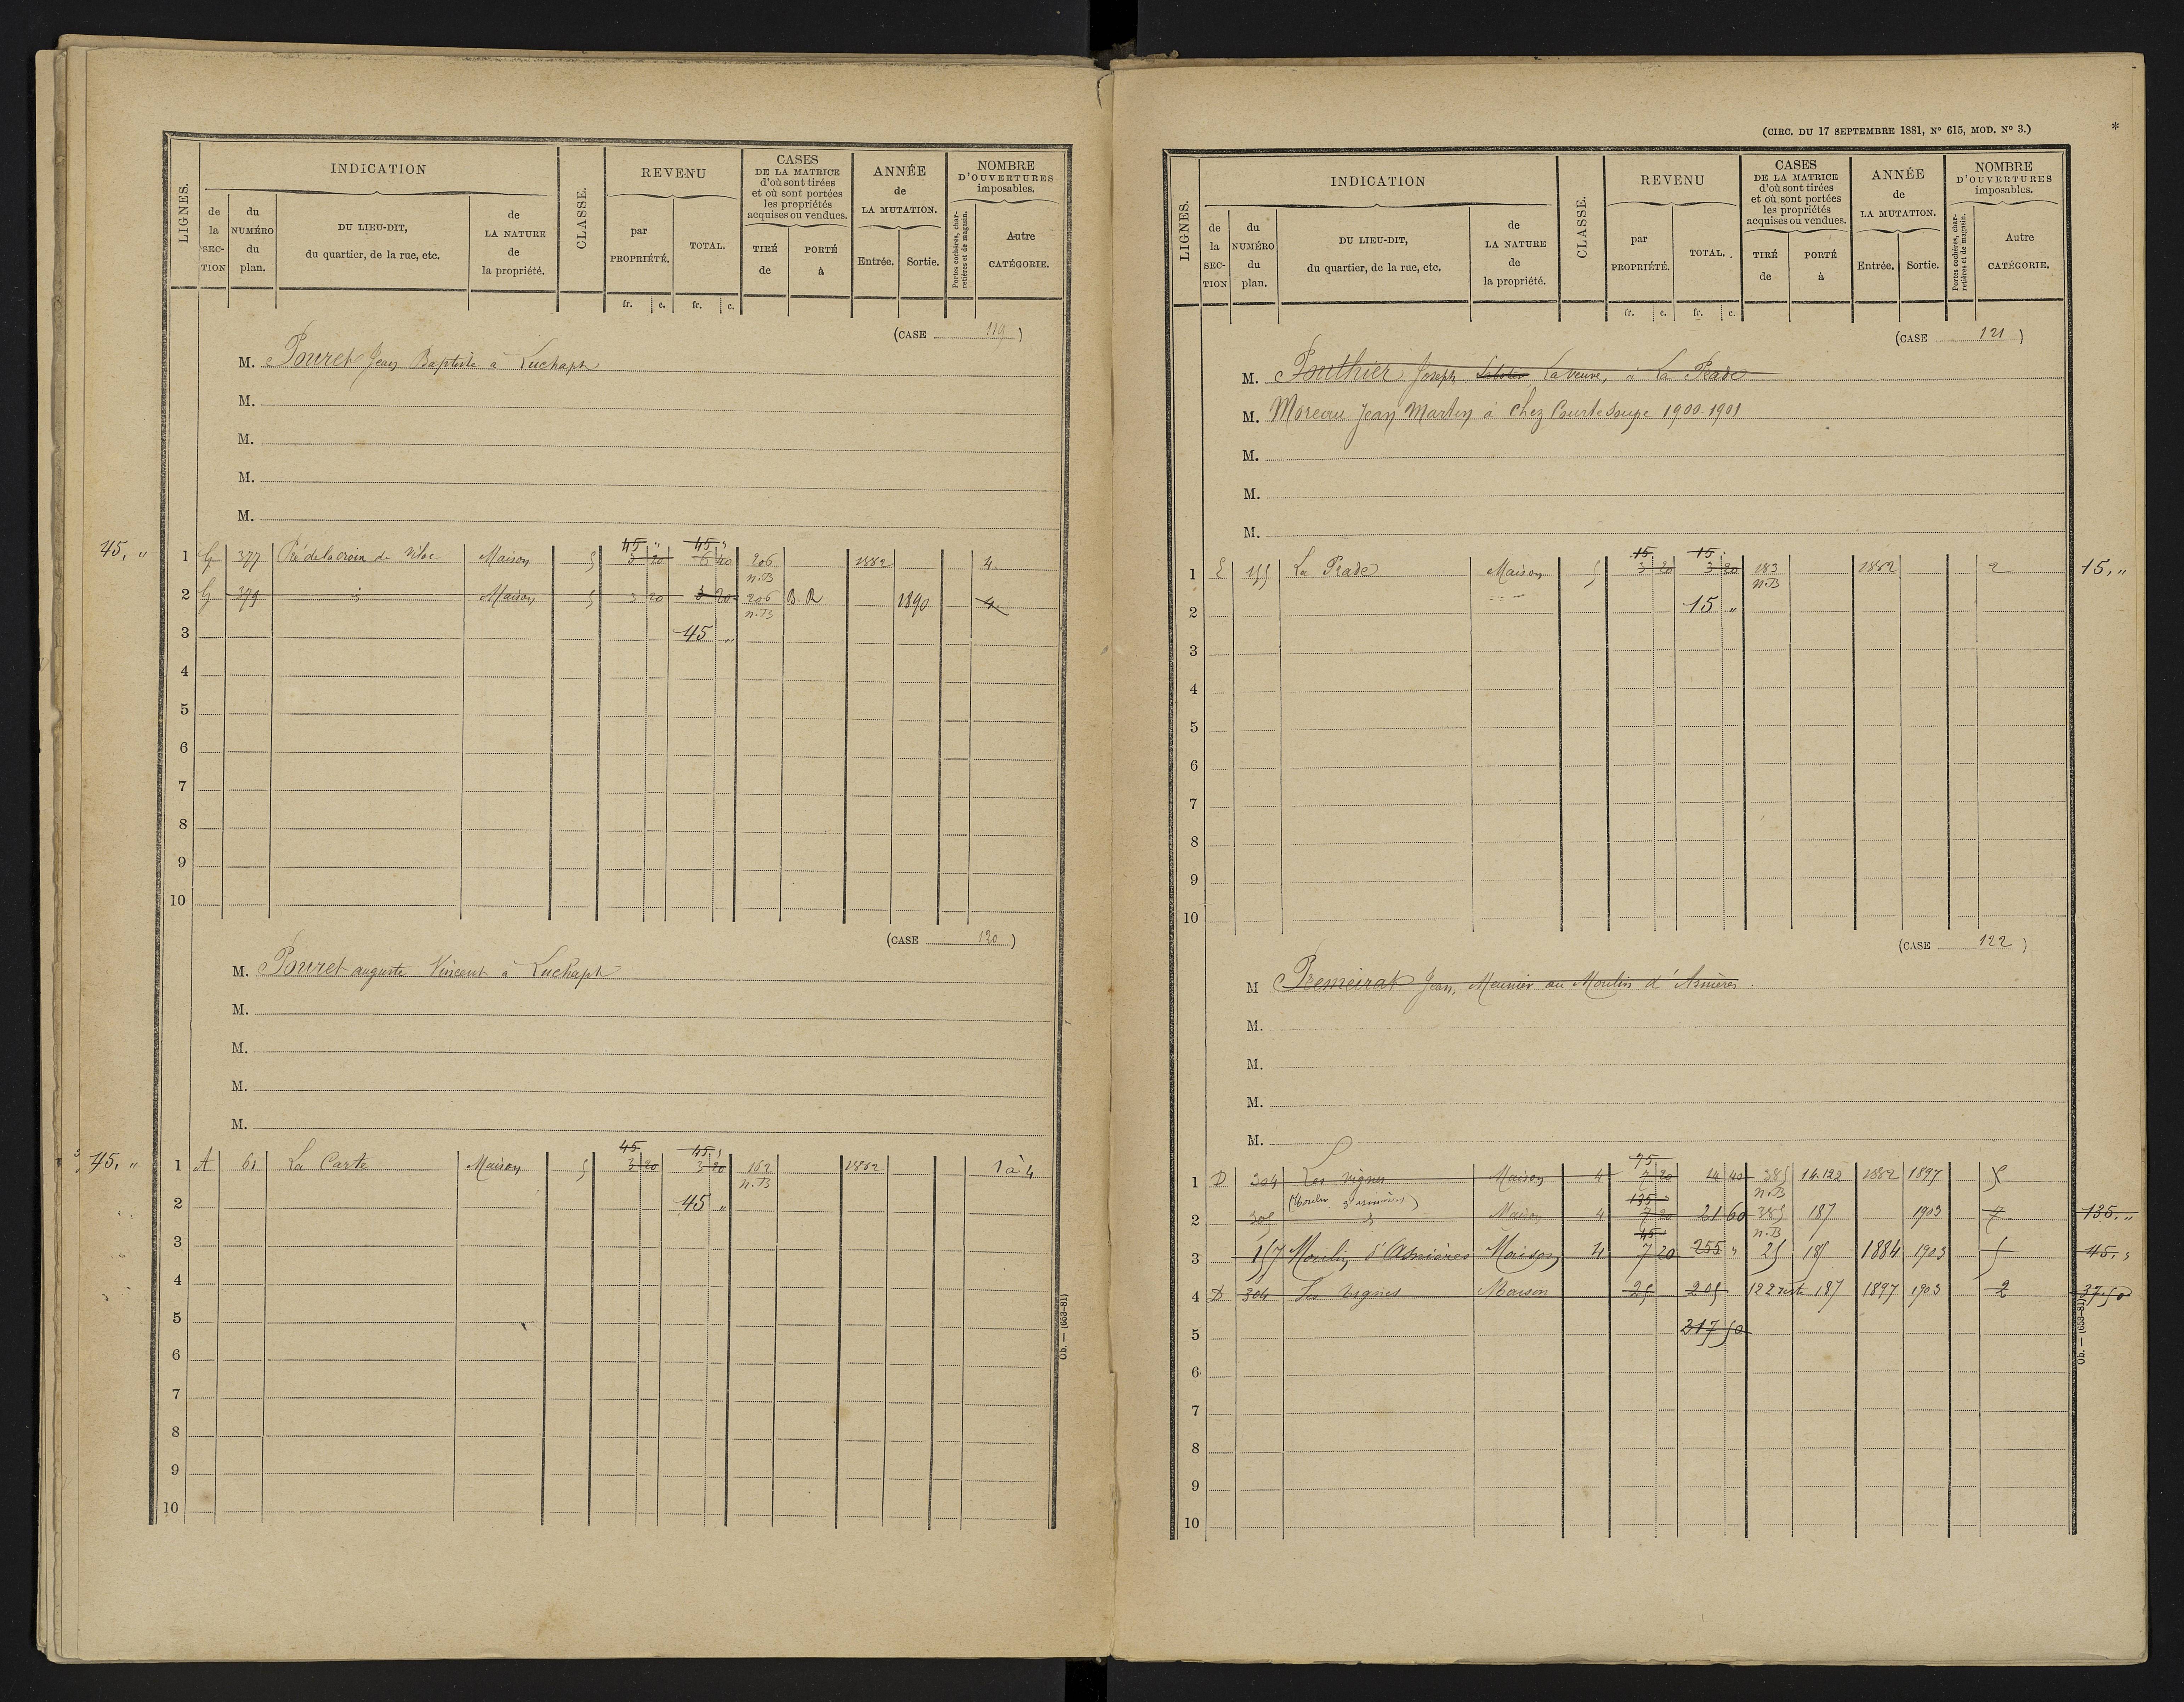 LIGNES.
INDICATION
de la SECTION
du NUMÉRO du plan.
DU LIEU-DIT, du quartier, de la rue, etc.
de LA NATURE de la propriété.
CLASSE.
REVENU
par PROPRIÉTÉ.
TOTAL.
CASES DE LA MATRICE d'où sont tirées et où sont portées les propriétés acquises ou vendues.
TIRÉ de
PORTÉ à
ANNÉE de LA MUTATION.
Entrée.
Sortie.
NOMBRE D'OUVERTURES imposables.
Portes cochères, charretières et de magasin.
Autre CATÉGORIE.
fr. c. fr. c.
(CASE 119)
M. Pouret Jean Baptiste à Luchapt
M.
M.
M.
M.
45 " 45 "
45, " 1 G 377 Pré de la croix de Maison 5 3 20 6 40 206 n.B 1882 4
2 G 379 d Maison 5 3 20 3 20 206 n.B B.R 1890 4
3 45 "
4
5
6
7
8
9
10
(CASE 120)
M. Pouret auguste Vincent à Luchapt
M.
M.
M.
M.
45 45 "
45, " 1 A 61 La Carte Maison 5 3 20 3 20 162 n.B 1882 1 à 4
2 45 "
3
4
5
6
7
8
9
10
Ob. — (653-81)
(CIRC. DU 17 SEPTEMBRE 1881, Nº 615, MOD. Nº 3.) *
LIGNES.
INDICATION
de la SECTION
du NUMÉRO du plan.
DU LIEU-DIT, du quartier, de la rue, etc.
de LA NATURE de la propriété.
CLASSE.
REVENU
par PROPRIÉTÉ.
TOTAL.
CASES DE LA MATRICE d'où sont tirées et où sont portées les propriétés acquises ou vendues.
TIRÉ de
PORTÉ à
ANNÉE de LA MUTATION.
Entrée.
Sortie.
NOMBRE D'OUVERTURES imposables.
Portes cochères, charretières et de magasin.
Autre CATÉGORIE.
fr. c. fr. c.
(CASE 121)
M. Ponthier Joseph La veuve, à La Prade
M. Moreau Jean Martin à chez Courtesoupe 1900-1901
M.
M.
M.
15 15
1 E 155 La Prade Maison 5 3 20 3 20 183 n.B 1882 2 15, "
2 15 "
3
4
5
6
7
8
9
10
(CASE 122)
M Premeirat Jean, Meunier au Moulin d'Asnières.
M.
M.
M.
M.
75
1 D 304 Les vignes Maison 4 7 20 14 40 385 n.B 14.122 1882 1897 5
(Moulin d'asnières) 135
2 305 d Maison 4 7 20 21 60 385 n.B 187 1903 7 135, "
45
3 157 Moulin d'Asnières Maison 4 7 20 255 " 25 185 1884 1903 5 45, "
4 D 304 Les vignes Maison 25 205 122 reste 187 1897 1903 2 37.50
5 317 50
6
7
8
9
10
Ob. — (653-81)